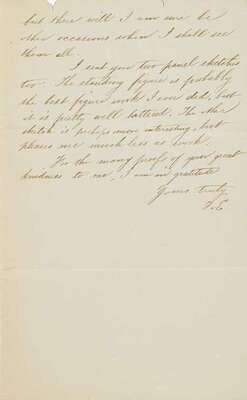 but there will I am sure be
other occasions when I shall see
them all.
I send you two panel sketches
too. The standing figure is probably
the best figure work I ever did, but
it is pretty well tattered. The other
sketch is perhaps more interesting, but
pleases me much less as work.
For the many proofs of your great
kindness to me, I am in gratitude
Yours truly